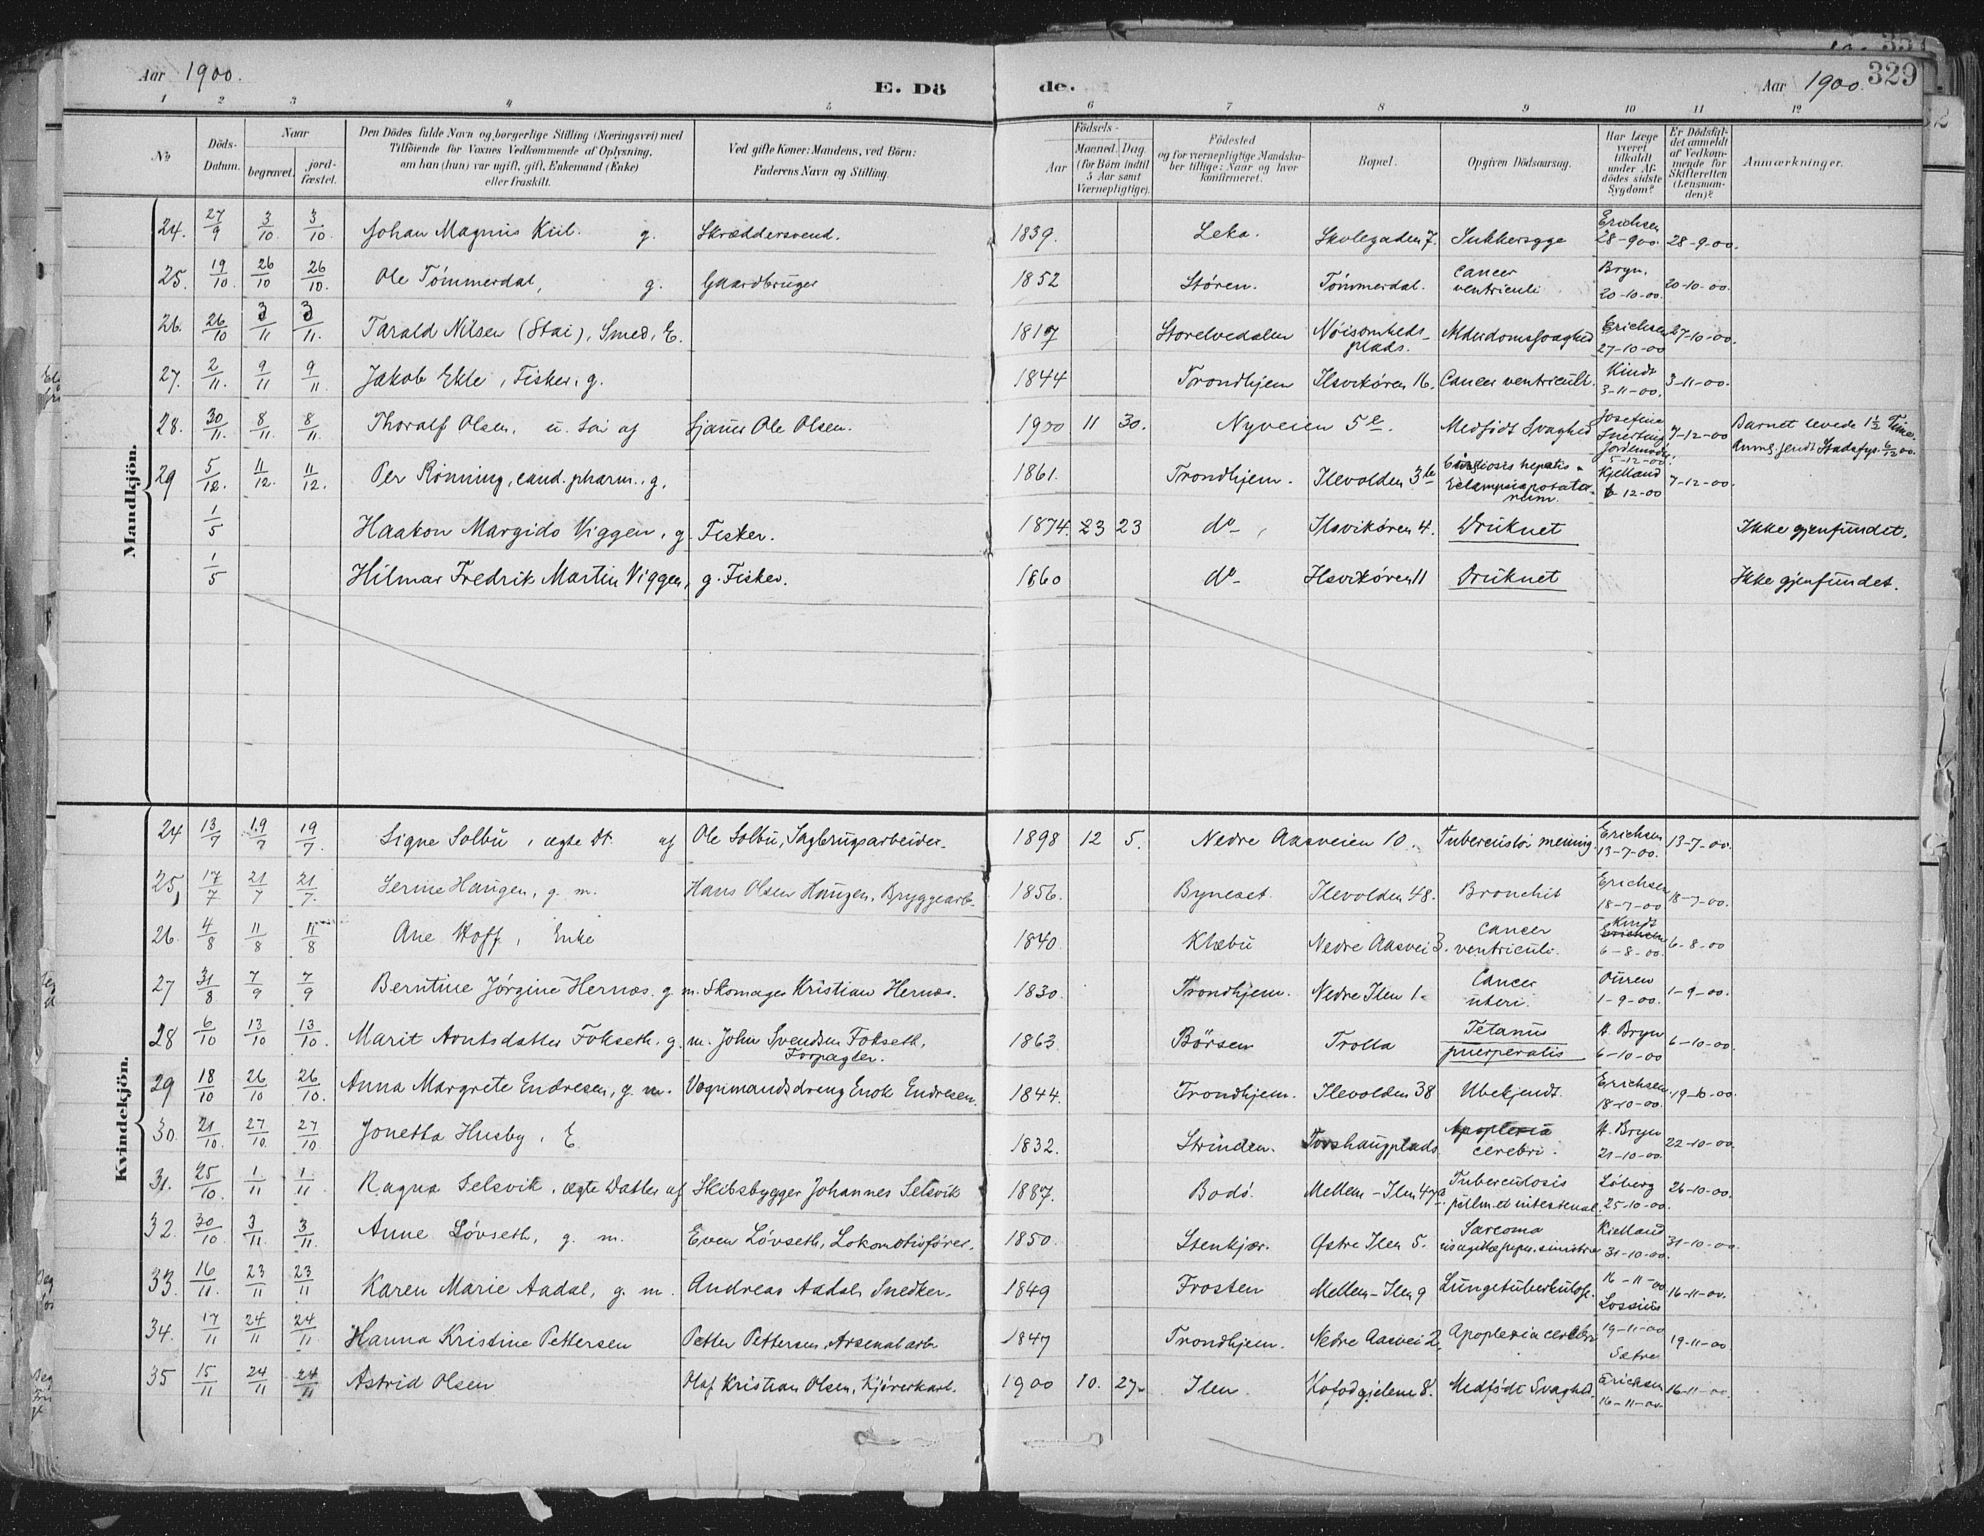 Aar 1900.
E. Dö
de.
Aar 1900.
329
1 2 3 4 5 6 7 8 9 10 11 12
No
Döds-Datum.
Naar
begravet.
jord-fæstet.
Den Dödes fulde Navn og borgerlige Stilling (Næringsvei) med
Tilföiende for Voxnes Vedkommende af Oplysning,
om han (hun) var ugift, gift, Enkemand (Enke)
eller fraskilt.
Ved gifte Koner: Mandens, ved Börn:
Faderens Navn og Stilling.
Födsels-
Aar
Maaned. Dag.
(for Börn indtil
5 Aar samt
Værnepligtige).
Födested
og for værnepligtige Mandska-
ber tillige: Naar og hvor
konfirmeret.
Bopæl.
Opgiven Dödsaarsag.
Har Læge
været
tilkaldt
under Af-
dödes sidste
Sygdom?
Er Dödsfal-
det anmeldt
af Vedkom-
mende for
Skifteretten
(Lensman-
den)?
Anmærkninger.
Mandkjön.
24. 27/9 3/10 3/10. Johan Magnus Kiil. g. Skræddersvend. 1839. Leka. Skolegaden 7. Sukkersyge Erichsen 28-9-00. 28-9-00.
25. 19/10 26/10 26/10. Ole Tömmerdal, g. Gaardbruger 1852 Stören. Tömmerdal. Cancer ventriculi Bryn. 20-10-00. 20-10-00.
26. 26/10 3/11 3/11. Tarald Nilsen (Stai), Smed, E. 1817 Storelvedalen Nöisomheds-plads. Alderdomssvaghed Erichsen 27-10-00 27-10-00.
27. 2/11. 9/11 9/11 Jakob Ekle, Fisker, g. 1844 Trondhjem Ilsvikören 16. Cancer ventriculi. Kindt 3-11-00. 3-11-00.
28. 30/11. 8/11. 8/11. Thoralf Olsen, u. Sön af Sjauer Ole Olsen. 1900 11 30. Nyveien 5 Medfödt Svaghed Josefine Jordemoder. 5-12-00. 7-12-00 Barnet levede 1½ Time.
29 5/12. 11/12. 11/12. Per Rönning, cand. pharm., g. 1861. Trondhjem. Ilevolden 3b Cirrhosis hepatis Kjelland 6-12-00 7-12-00.
1/5 Haakon Margido Viggen, g. Fisker. 1874. 23 23 do Ilsvikören 4. Druknet Ikke gjenfundet.
1/5 Hilmar Fredrik Martin Viggen, g. Fisker. 1860 do Ilsvikören 11 Druknet Ikke gjenfundet.
Kvindekjön.
24 13/7 19/7 19/7. Signe Solbu, ægte Dt. af Ole Solbu, Sagbrugsarbeider. 1898 12 5. Nedre Aasveien 10. Tuberculös mening. Erichsen 13-7-00. 13-7-00.
25, 17/7 21/7 21/7. Serine Haugen, g. m. Hans Olsen Haugen, Bryggearb. 1856. Byneset. Ilevolden 48. Bronchit Erichsen 18-7-00 18-7-00.
26. 4/8 11/8 11/8 Ane Hoff, Enke 1840. Klæbu Nedre Aasvei 3. Cancer ventriculi. Kindt Erichsen 6-8-00. 6-8-00
27 31/8 7/9 7/9 Berntine Jörgine Hernæs. g. m. Skomager Kristian Hernæs. 1830. Trondhjem. Nedre Ilen 1. Cancer uteri. Ouren 1-9-00. 1-9-00.
28 6/10 13/10 13/10. Marit Arntsdatter Fokseth. g. m. John Svendsen Fokseth, Forpagter. 1863. Börsen Trolla Tetanus puerperalis H. Bryn 6-10-00 6-10-00.
29 18/10 26/10 26/10. Anna Margrete Endresen, g. m. Vognmandsdreng Enok Endresen. 1844. Trondhjem. Ilevolden 38 Ubekjendt. Erichsen 18-10-00. 19-10-00.
30. 21/10. 27/10. 27/10 Jonetta Husby, E 1832. Strinden. Torshaugplads. Apoplexia cerebri. H. Bryn 21-10-00. 22-10-00.
31. 25/10. 1/11 1/11 Ragna Selsvik, ægte Datter af Skibsbygger Johannes Selsvik 1887. Bodö. Mellem-Ilen 47a. Tuberculosis pulm. et intestenal. Löberg 25-10-00. 26-10-00.
32. 30/10. 3/11. 3/11. Anne Lövseth, g. m. Even Lövseth, Lokomotivförer. 1850. Stenkjær. Östre Ilen 5. Sarcoma Kielland 31-10-00. 31-10-00.
33. 16/11. 23/11 23/11 Karen Marie Aadal, g. m. Andreas Aadal, Snedker. 1849 Frosten Mellem-Ilen 9 Lungetuberkulose. 16-11-00 Lossius 16-11-00.
34. 17/11 24/11 24/11 Hanna Kristine Pettersen Petter Pettersen, Arsenalarb. 1847 Trondhjem. Nedre Aasvei 2, Apoplexia cerebri 19-11-00 Sætre 19-11-00
35 15/11 24/11 24/11 Astrid Olsen Olaf Kristian Olsen, Kjörerkarl. 1900 10. 27. Ilen. Kofodgjelene 8. Medfödt Svaghed. Erichsen 16-11-00 16-11-00.